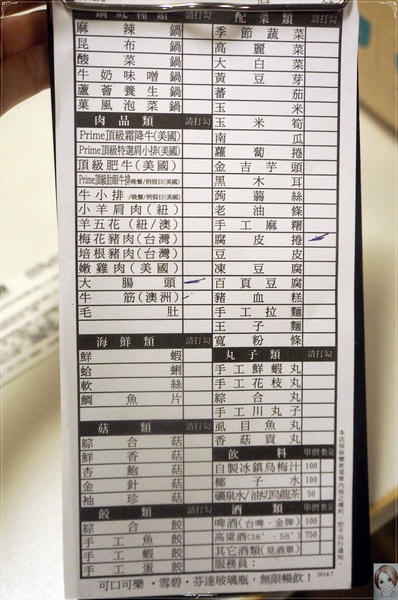 鍋底種類 請打勾
麻辣鍋
昆布鍋
酸菜鍋
牛奶味噌鍋
蘆薈養生鍋
菓風泡菜鍋
肉品類 請打勾
Prime頂級霜降牛(美國)
Prime頂級特選肩小排(美國)
頂級肥牛(美國)
Prime頂級肋眼牛排/晚餐/例假日(美國)
牛小排/晚餐/例假日(美國)
小羊肩肉(紐)
羊五花(紐/澳)
梅花豬肉(台灣)
培根豬肉(台灣)
嫩雞肉(美國)
大腸頭
牛筋(澳洲)
毛肚
海鮮類 請打勾
鮮蝦
蛤蜊
軟絲
鯛魚片
菇類 請打勾
綜合菇
鮮香菇
杏鮑菇
金針菇
袖珍菇
餃類 請打勾
綜合餃
手工魚餃
手工蝦餃
手工蛋餃
配菜類 請打勾
季節蔬菜
高麗菜
大白菜
黃豆芽
蕃茄
玉米
玉米筍
南瓜
蘿蔔捲
金吉芋頭
黑木耳
蒟蒻絲
老油條
手工麻糬
腐皮捲
豆皮
凍豆腐
百頁豆腐
豬血糕
手工拉麵
王子麵
寬粉條
丸子類 請打勾
手工鮮蝦丸
手工花枝丸
綜合丸
手工川丸子
虱目魚丸
香菇貢丸
飲料 單價 數量
自製冰鎮烏梅汁 100
椰子水 100
礦泉水/油切烏龍茶 50
酒類 單價 數量
啤酒(台啤・金牌) 100
高粱酒(38°・58°) 750
其它酒類(見酒單)
服務員:
2014.7
可口可樂・雪碧・芬達玻璃瓶,無限暢飲!